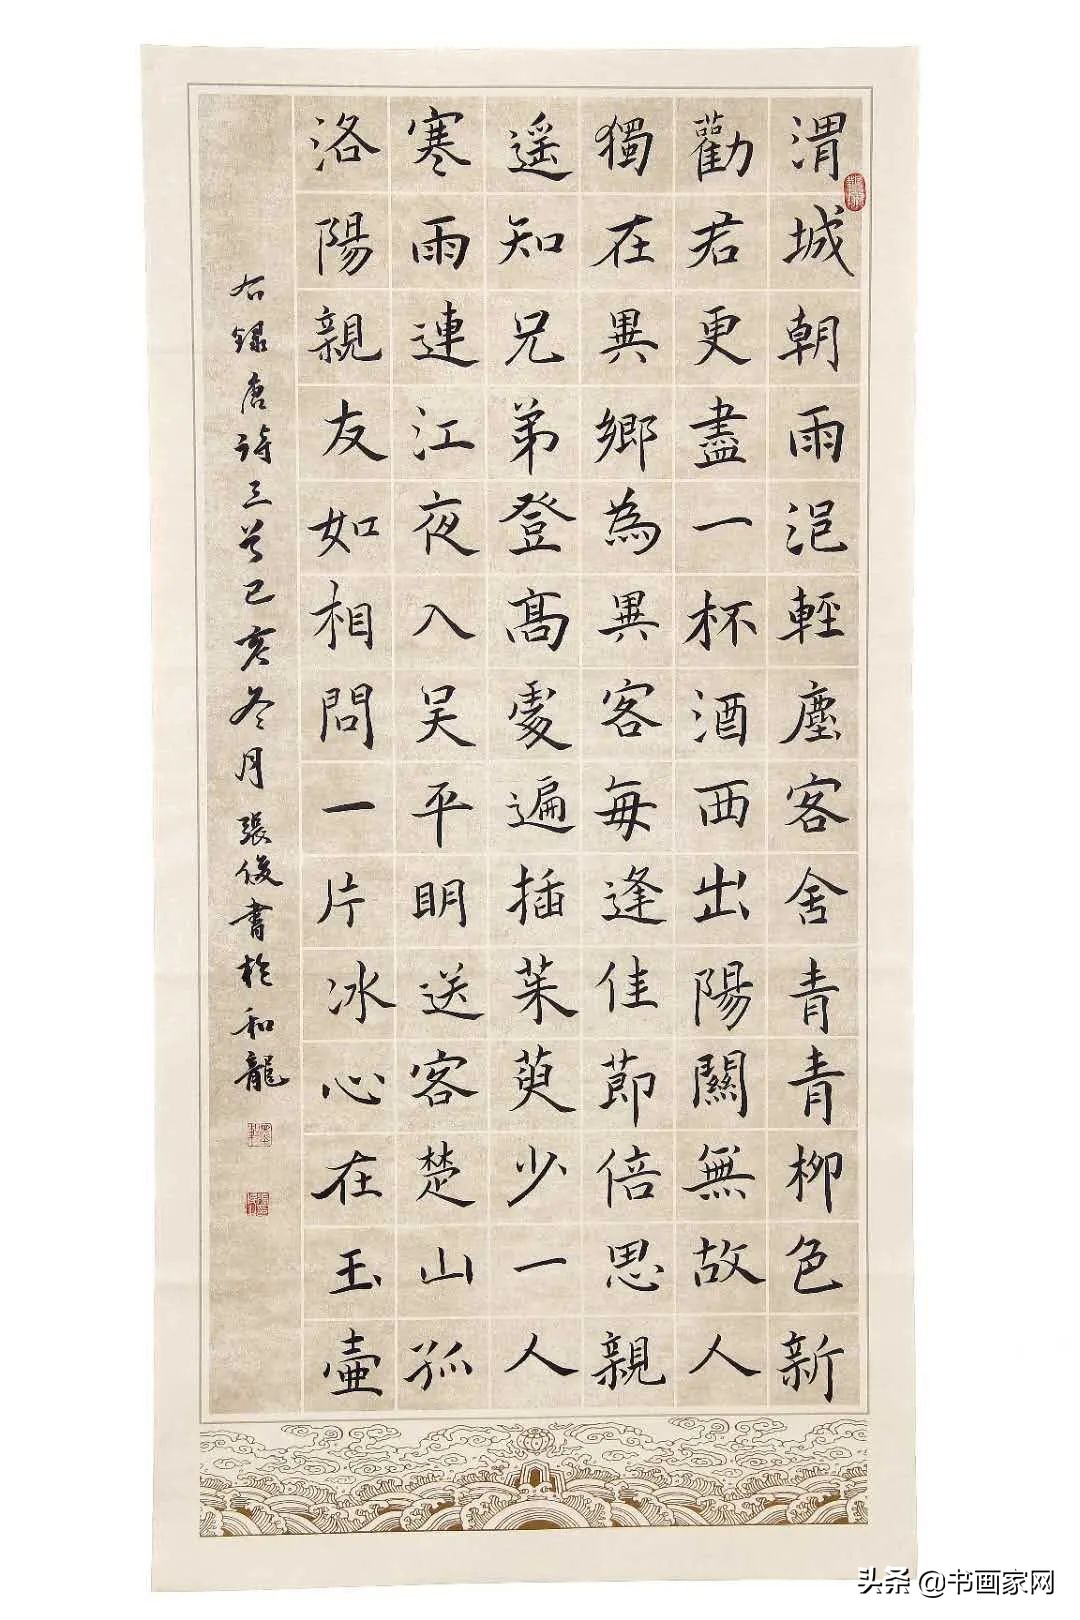 渭城朝雨浥輕塵客舍青青柳色新
勸君更盡一杯酒西出陽關無故人
獨在異鄉為異客每逢佳節倍思親
遥知兄弟登高處遍插茱萸少一人
寒雨連江夜入吴平明送客楚山孤
洛陽親友如相問一片冰心在玉壺
右録唐詩三首己亥冬月張俊書於和龍
头条 @书画家网